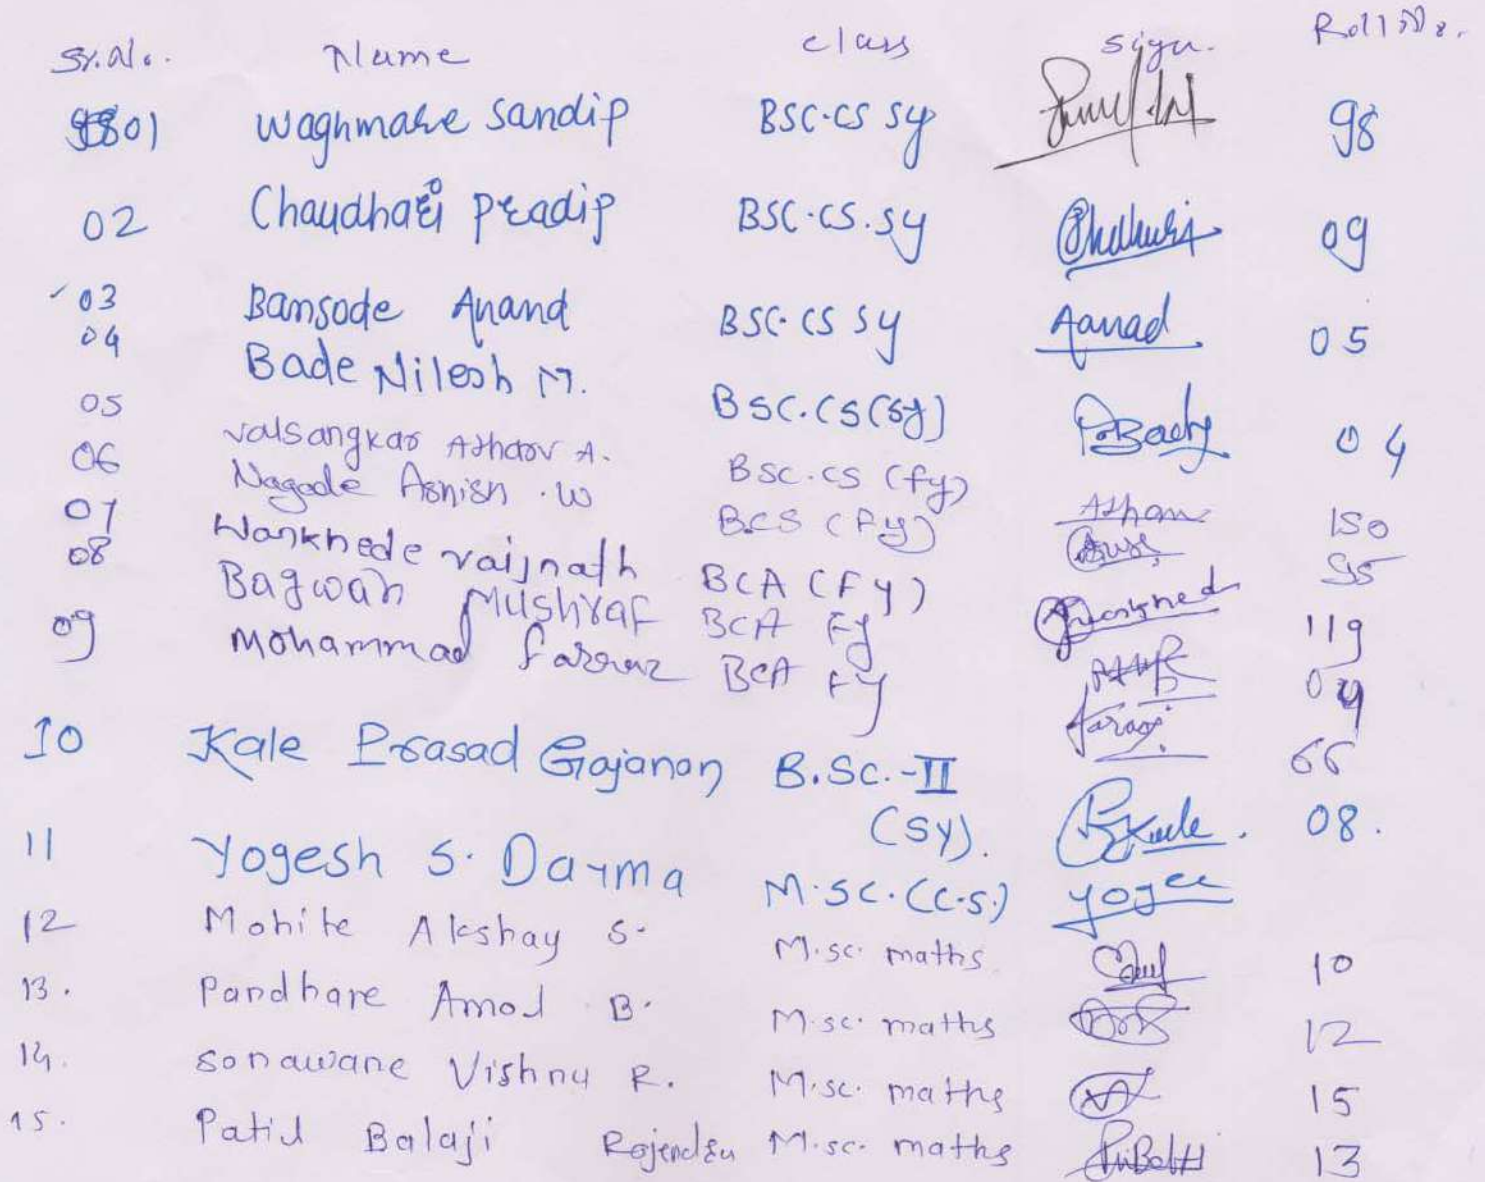 Sr.No. Name Class Sign. Roll No.
01 Waghmare Sandip BSC.CS SY 98
02 Chaudhari Pradip BSC.CS.SY 09
03 Bansode Anand BSC.CS SY Aanad 05
04 Bade Nilesh M. BSC.CS(SY) 04
05 Valsangkar Atharv A. BSC.CS (fy) 150
06 Nagode Ashish .W BCS (Fy) 55
07 Wankhede vaijnath BCA (FY) 119
08 Bagwan Mushraf BCA FY 04
09 Mohammad BCA FY 66
10 Kale Prasad Gajanan B.Sc.-II (SY). 08.
11 Yogesh S. Darma M.SC.(C.S.) yogee
12 Mohite Akshay S. M.sc. maths 10
13. Pandhare Amol B. M.sc. maths 12
14. Sonawane Vishnu R. M.sc. maths 15
15. Patil Balaji Rajendra M.sc. maths 13